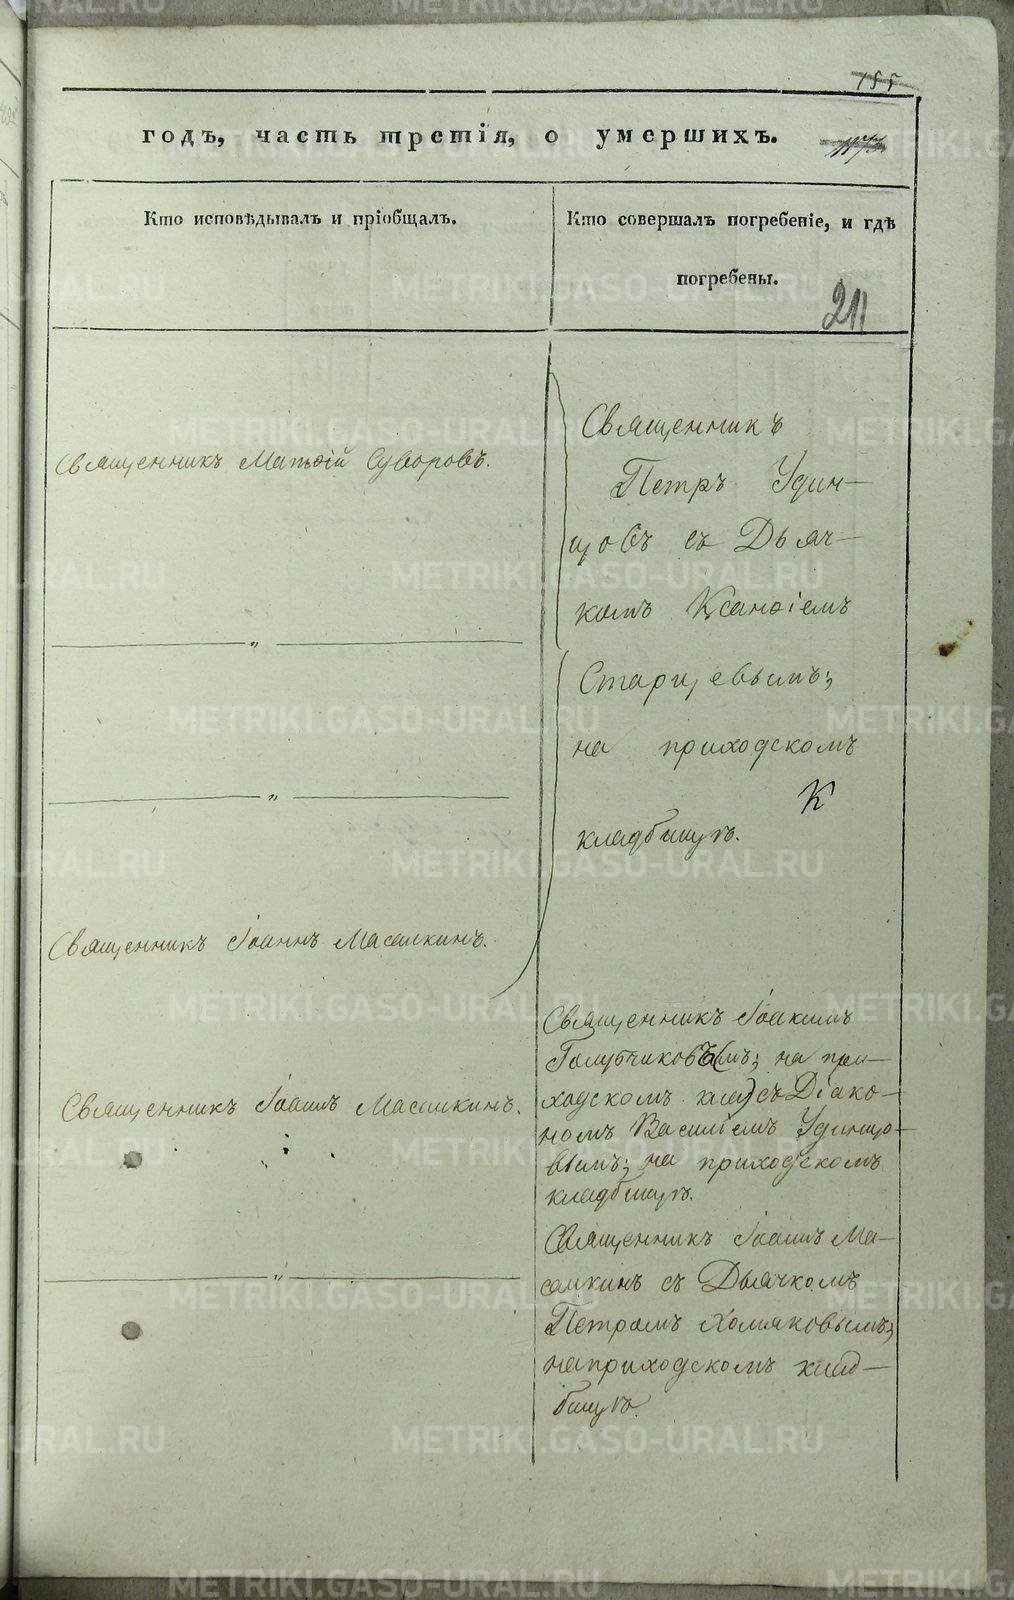 155
годъ, часть третія, о умершихъ.
Кто исповѣдывалъ и пріобщалъ.
Кто совершалъ погребеніе, и гдѣ
погребены.
211
Священникъ Матѳій Суворовъ.
Священникъ
Петръ Удин-
цовъ съ Дьяч-
комъ Ксанѳіемъ
Старцевымъ;
на приходскомъ
К
кладбищѣ.
Священникъ Іоаннъ Масалкинъ.
Священникъ Іоаннъ Масалкинъ.
Священникъ Іоакимъ
Голубчиковъ; на при-
ходскомъ съ Діако-
номъ Василіемъ Удинцо-
вымъ; на приходскомъ
кладбищѣ.
Священникъ Іоаннъ Ма-
салкинъ съ Дьячкомъ
Петромъ Хомяковымъ;
на приходскомъ клад-
бищѣ.
METRIKI.GASO-URAL.RU